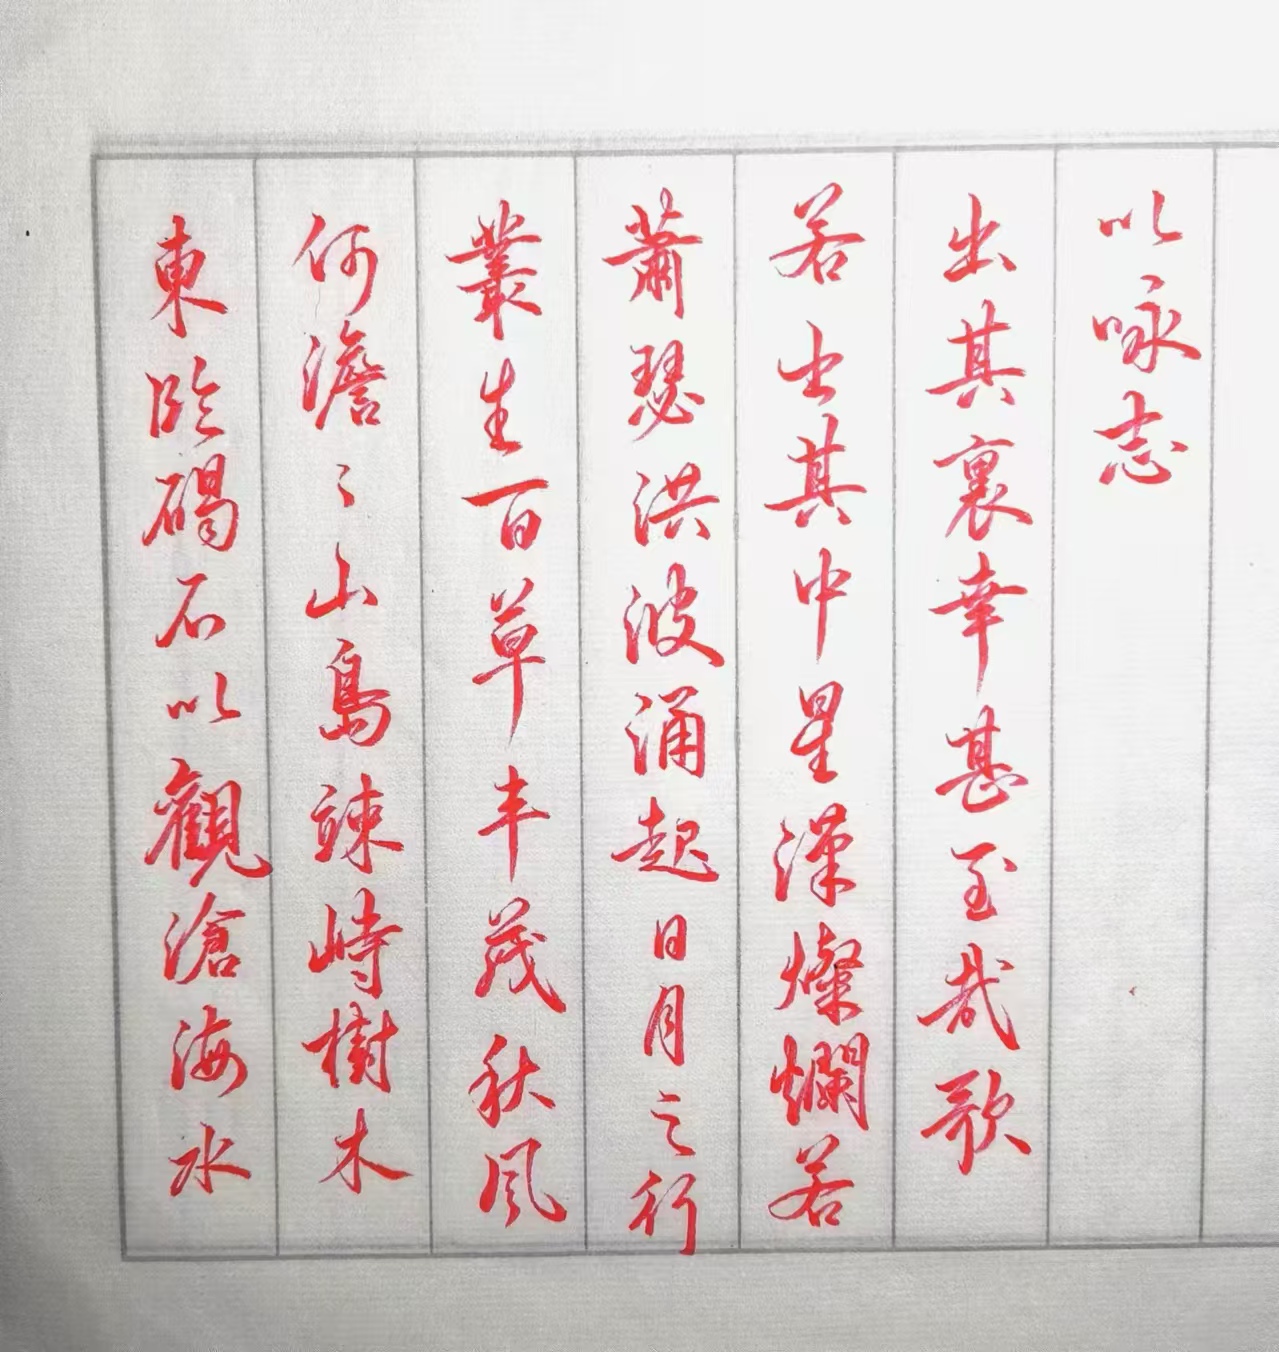 東臨碣石以觀滄海水
何澹〻山島竦峙樹木
叢生百草丰茂秋風
蕭瑟洪波涌起日月之行
若出其中星漢燦爛若
出其裏幸甚至哉歌
以咏志